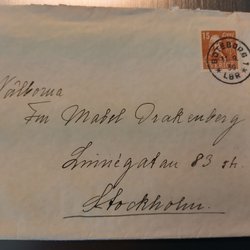 15
GÖTEBORG 1
LBR
Välborna
Fru Mabel Drakenberg
Linnégatan 83
Stockholm.